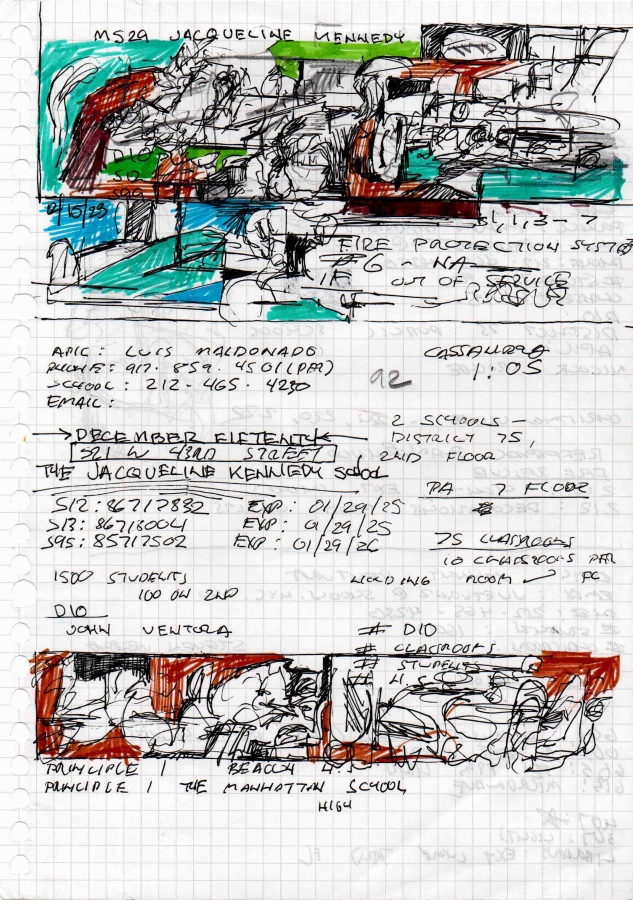 MS29 JACQUELINE KENNEDY
D10
S12
S95
12/15/23
S1, 1, 3 - 7
FIRE PROTECTION SYSTEM
#6 - NA
IF OUT OF SERVICE
APIC: LUIS MALDONADO
PHONE: 917.859.4501 (PER)
SCHOOL: 212.465.4230
EMAIL:
CASSANDRA
1:05
92
DECEMBER FIFTENTH
521 W 43RD STREET
THE JACQUELINE KENNEDY School
2 SCHOOLS -
DISTRICT 75,
2ND FLOOR
PA 7 FLOOR
S12: 86717832 EXP: 01/29/25
S13: 86713004 EXP: 01/29/25
S95: 85717502 EXP: 01/29/26
75 CLASSROOMS
10 CLASSROOMS PER
HOLDING ROOM ✓ FC
1500 STUDENTS
100 ON 2ND
D10
JOHN VENTOLA
# D10
# CLASSROOMS
# STUDENTS
# H.S.
PRINCIPLE | BEACON H.S
PRINCIPLE | THE MANHATTAN SCHOOL
H164